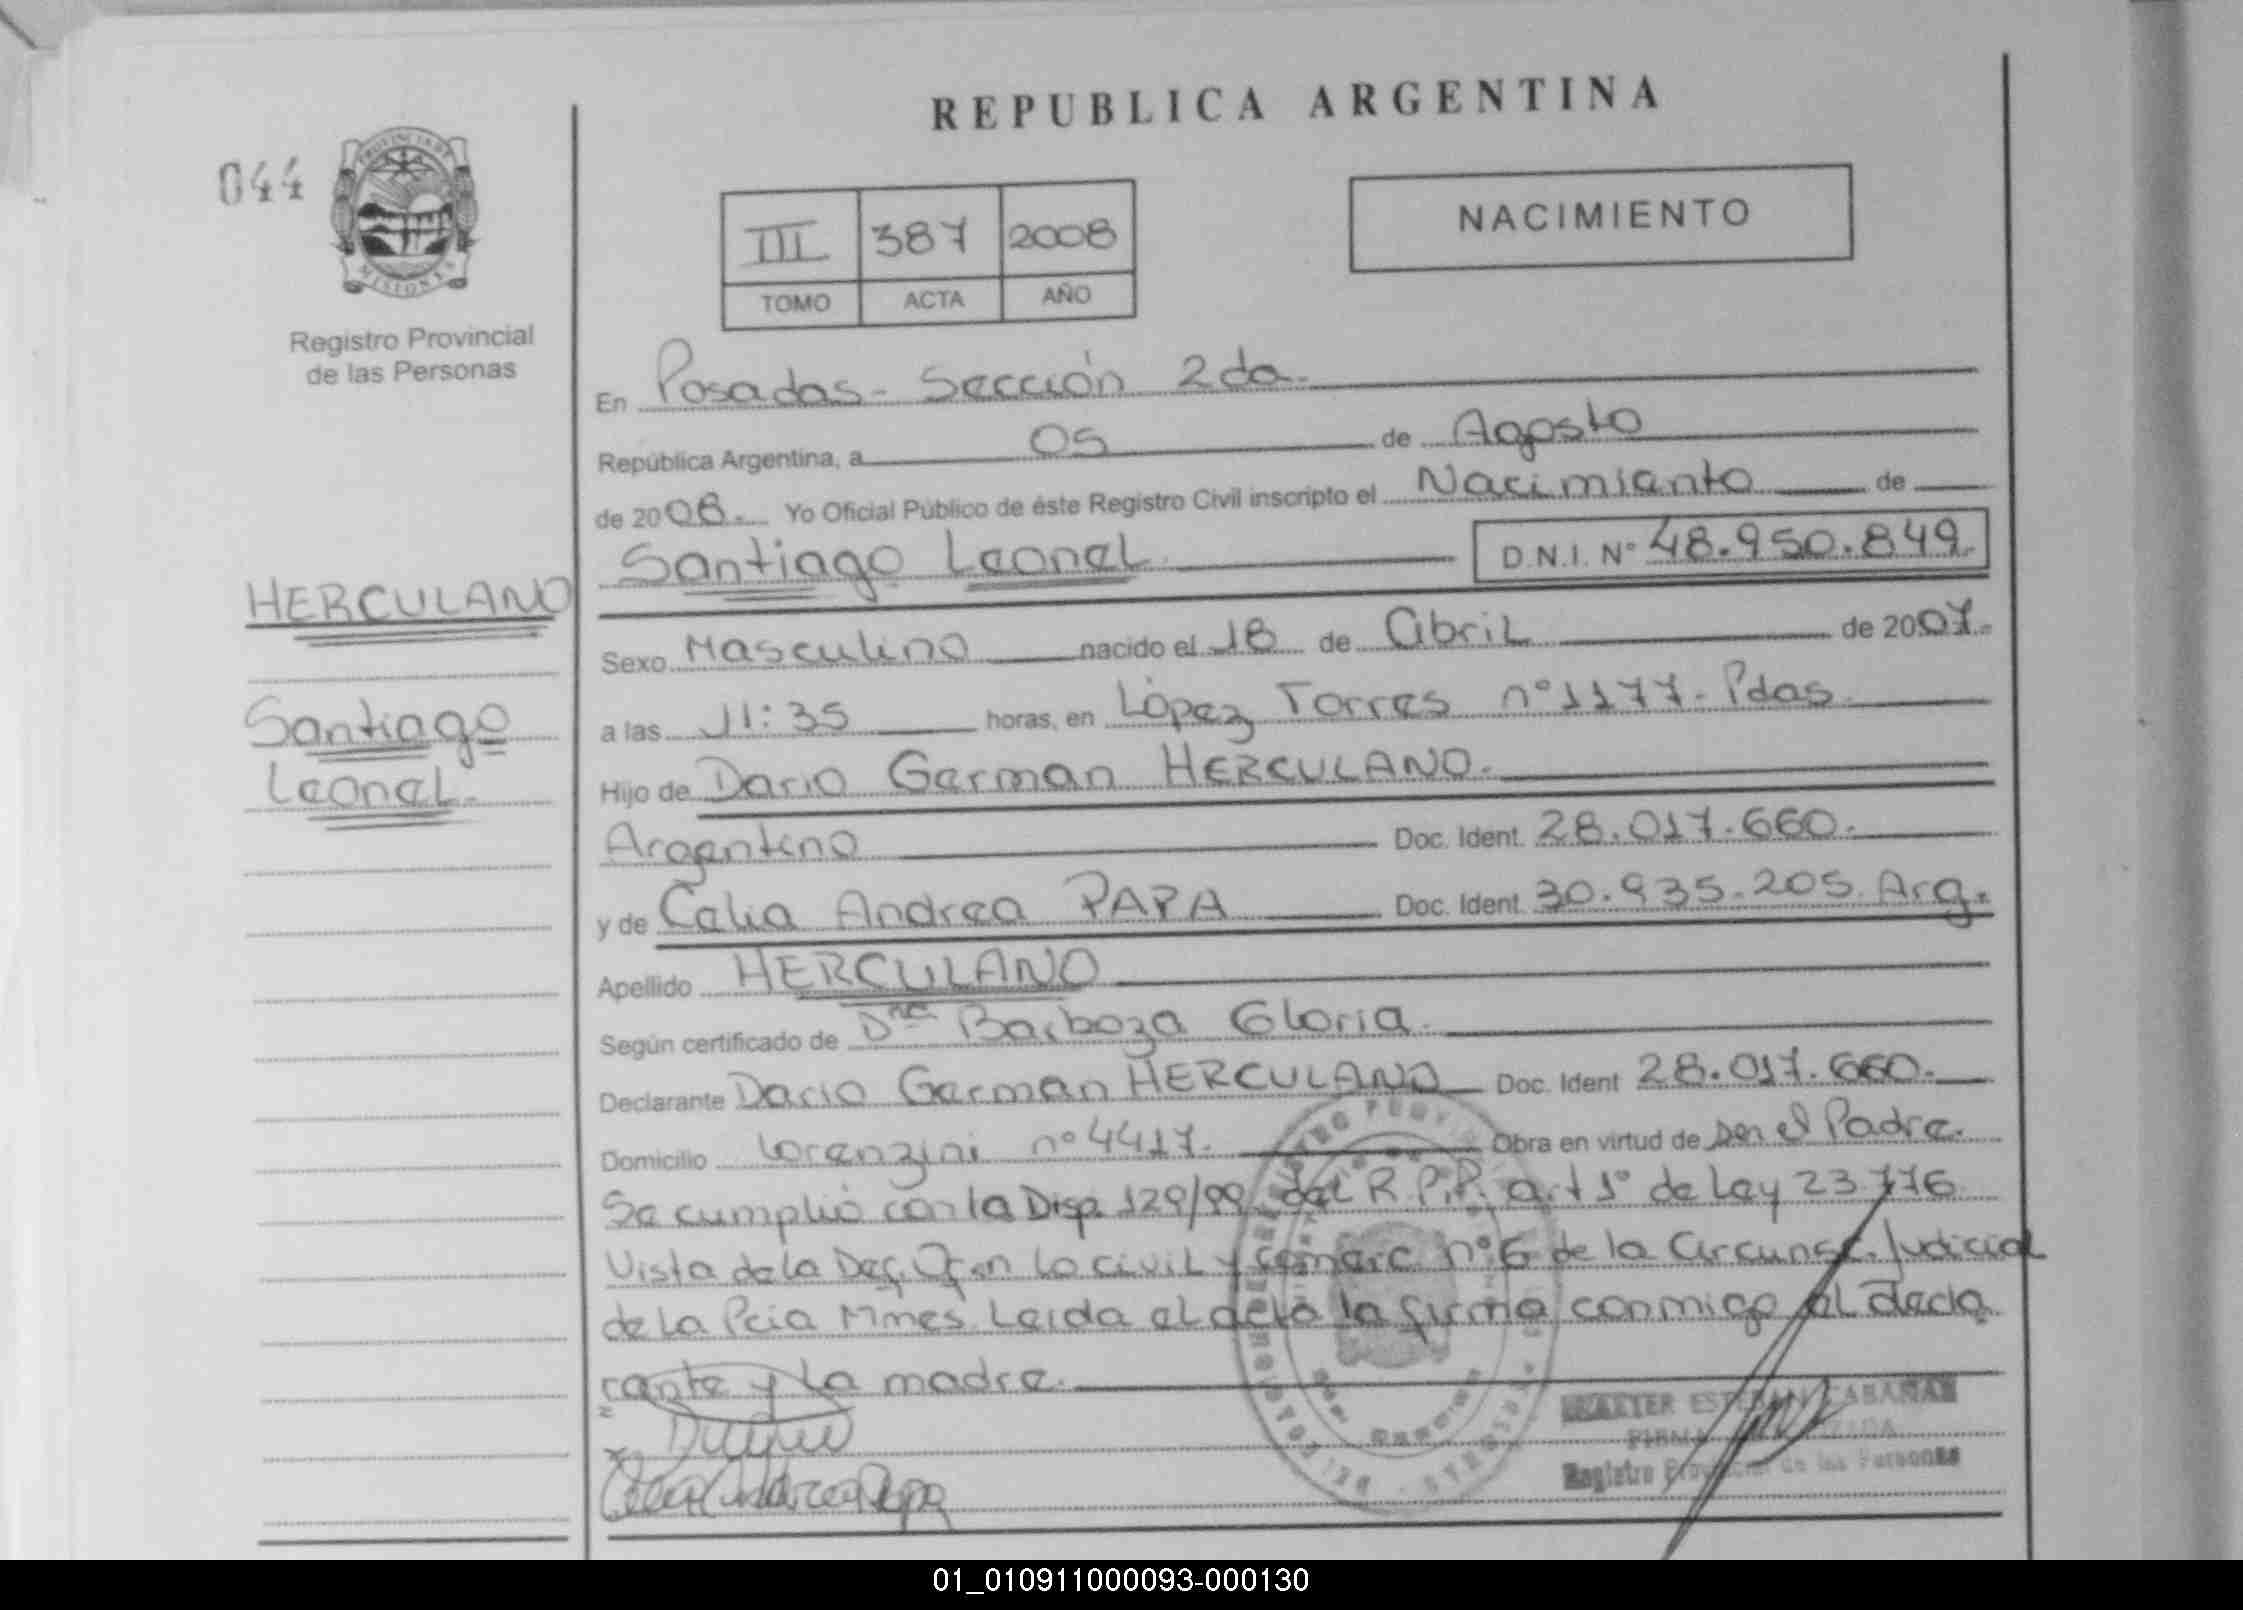 REPUBLICA ARGENTINA
044
PROVINCIA DE
MISIONES
Registro Provincial
de las Personas
III 387 2008
TOMO ACTA AÑO
NACIMIENTO
En Posadas - Sección 2da.
República Argentina, a 05 de Agosto
de 2008. Yo Oficial Público de éste Registro Civil inscripto el Nacimiento de
Santiago Leonel D.N.I. Nº 48.950.849.
HERCULANO
Santiago
Leonel.
Sexo Masculino nacido el 18 de abril de 2007.
a las 11:35 horas, en López Torres nº 1177 - Pdas.
Hijo de Dario German HERCULANO.
Argentino Doc. Ident. 28.017.660.
y de Celia Andrea PAPA Doc. Ident. 30.935.205. Arg.
Apellido HERCULANO
Según certificado de Dra Barboza Gloria.
Declarante Dario German HERCULANO Doc. Ident 28.017.660.
Domicilio Lorenzini nº 4417. Obra en virtud de ser el Padre.
Se cumplió con la Disp. 129/99 del R.P.P. art 1º de Ley 23.776
Vista de la Def. Of. en lo civil y comerc. nº 6 de la Circunsc. Judicial
de la Pcia Mnes Leida el acta la firma conmigo el decla
rante y la madre.
Celia Andrea Papa
Registro Provincial de las Personas
01_010911000093-000130